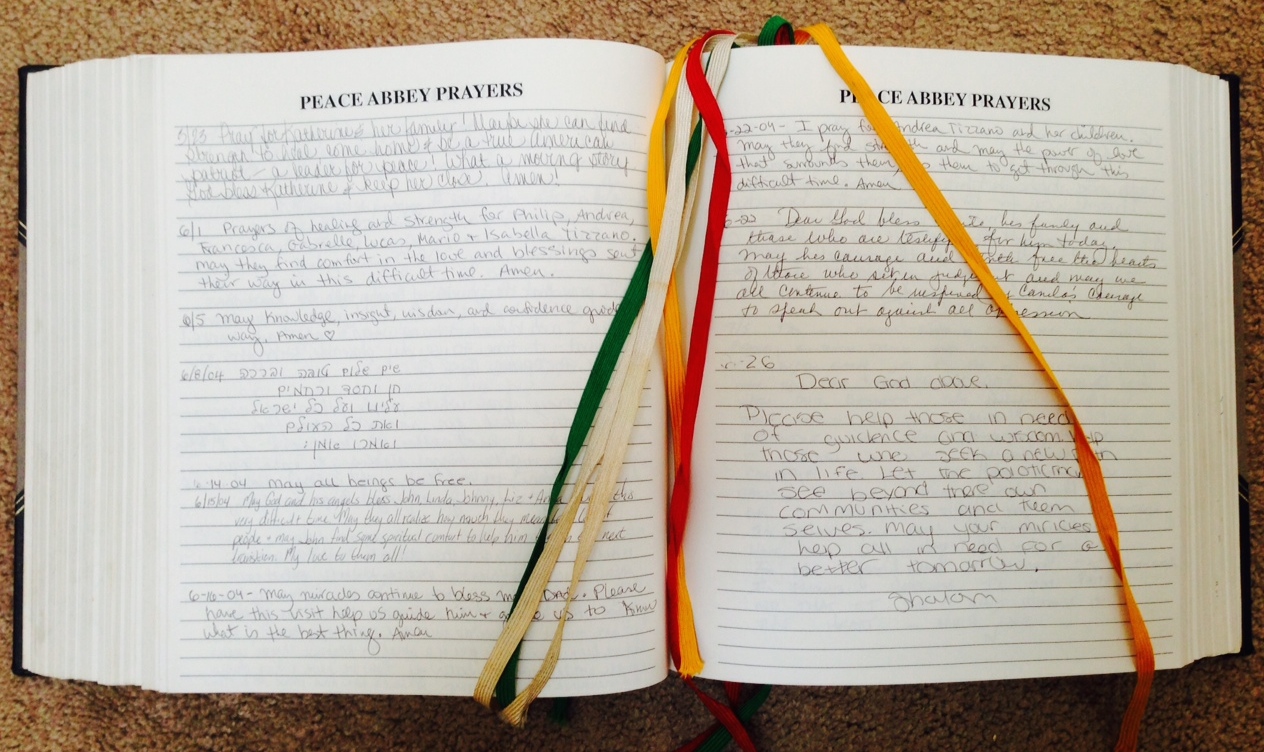 PEACE ABBEY PRAYERS
5/23 Pray for Katherine & her family! Maybe she can find
strength to come home & be a true American
patriot – a leader for peace! What a moving story
God bless Katherine & keep her close. Amen!
6/1 Prayers of healing and strength for Philip, Andrea,
Francesca, Gabrielle, Lucas, Mario + Isabella Tizzano,
may they find comfort in the love and blessings sent
their way in this difficult time. Amen.
6/5 may knowledge, insight, wisdom, and confidence
way. Amen ♡
6/8/04 שים שלום טובה וברכה
חן וחסד ורחמים
עלינו ועל כל ישראל
ואת כל העולם
ואמרו אמן:
6-14-04 may all beings be free.
6/15/04 May God and his angels bless John, Linda, Johnny, Liz + this
very difficult time. May they all realize how much they mean
people + may John find some spiritual comfort to help him next
transition. My love to them all!
6-16-04 - may miracles continue to bless Please
have this visit help us guide him + us to know
what is the best thing. Amen
PEACE ABBEY PRAYERS
-22-04 - I pray for Andrea Tizzano and her children.
may they find strength and may the power of love
that surrounds them them to get through this
difficult time. Amen
-22 Dear God bless his family and
those who are for him today.
may his courage and faith free the hearts
of those who sit in judgement and may we
all continue to be inspired by Camilo's courage
to speak out against all oppression
26
Dear God above,
Please help those in need
of guidence and wisdom. Help
those who seek a new
in life. Let the
see beyond there own
communities and them
selves. May your miricles
help all in need for a
better tomorrow.
Shalom